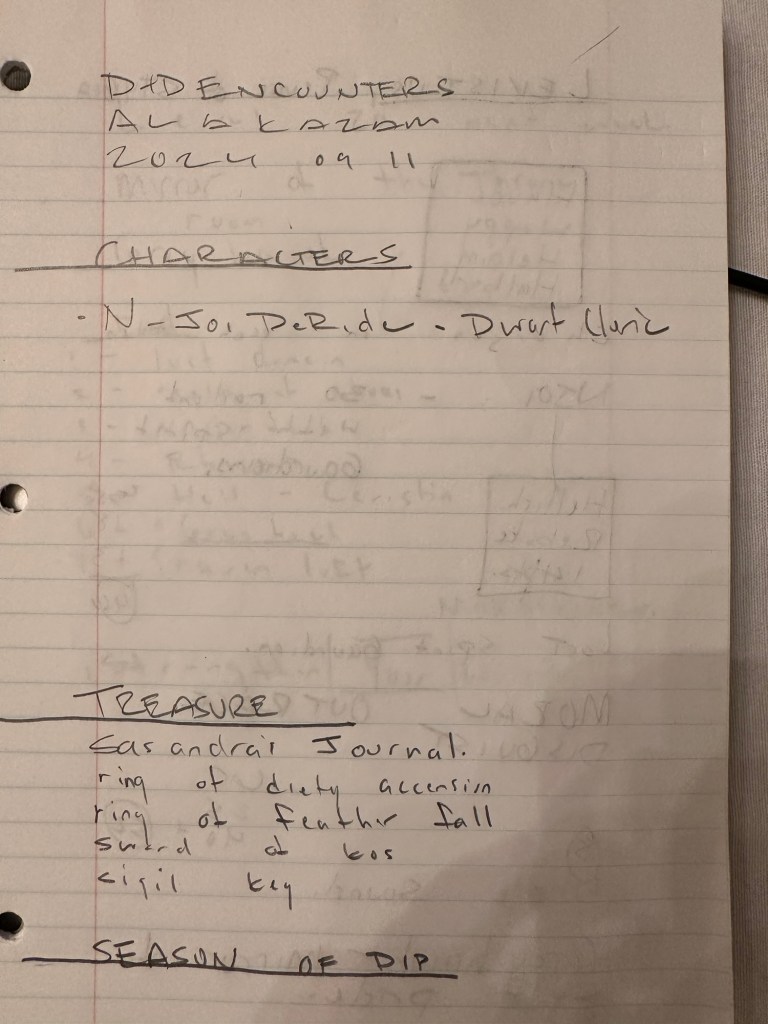 D+D ENCOUNTERS
ALAKAZAM
2024 09 11
CHARACTERS
· N-Joi DeRide - Dwarf Cleric
TREASURE
Casandra's Journal.
ring of diety accension
ring of feather fall
sword of kos
sigil key
SEASON OF DIP